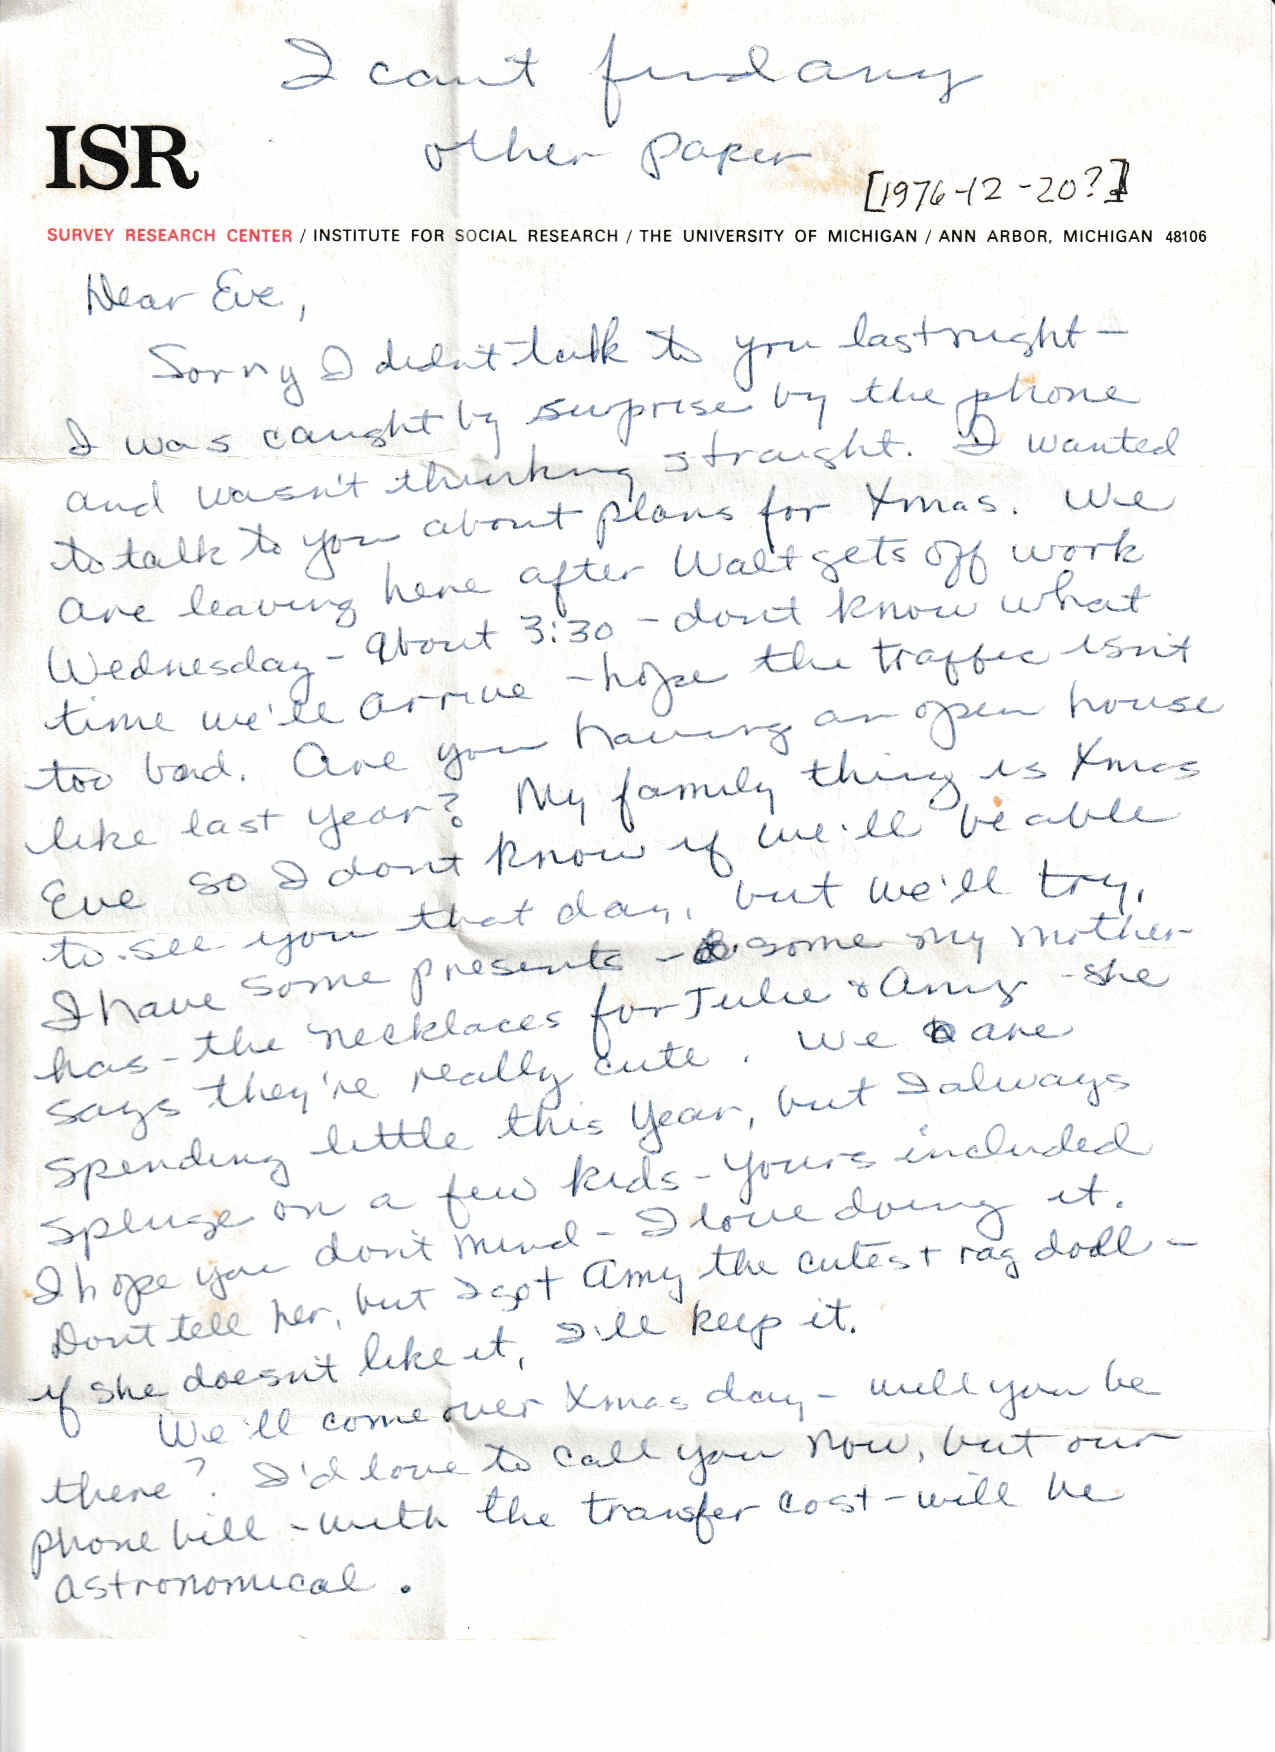 I cant find any
other paper
ISR
[1976-12-20?]
SURVEY RESEARCH CENTER / INSTITUTE FOR SOCIAL RESEARCH / THE UNIVERSITY OF MICHIGAN / ANN ARBOR, MICHIGAN 48106
Dear Eve,
Sorry I didn't talk to you last night –
I was caught by surprise by the phone
and wasn't thinking straight. I wanted
to talk to you about plans for Xmas. We
are leaving here after Walt gets off work
Wednesday – about 3:30 – dont know what
time we'll arrive – hope the traffic isn't
too bad. Are you having an open house
like last year? My family thing is Xmas
Eve so I dont know if we'll be able
to see you that day, but we'll try.
I have some presents – some my mother
has – the necklaces for Julie & Amy – she
says they're really cute. We are
spending little this year, but I always
spluge on a few kids – yours included
I hope you don't mind – I love doing it.
Dont tell her, but I got Amy the cutest rag doll –
if she doesn't like it, I'll keep it.
We'll come over Xmas day – will you be
there? I'd love to call you now, but our
phone bill – with the transfer cost – will be
astronomical.